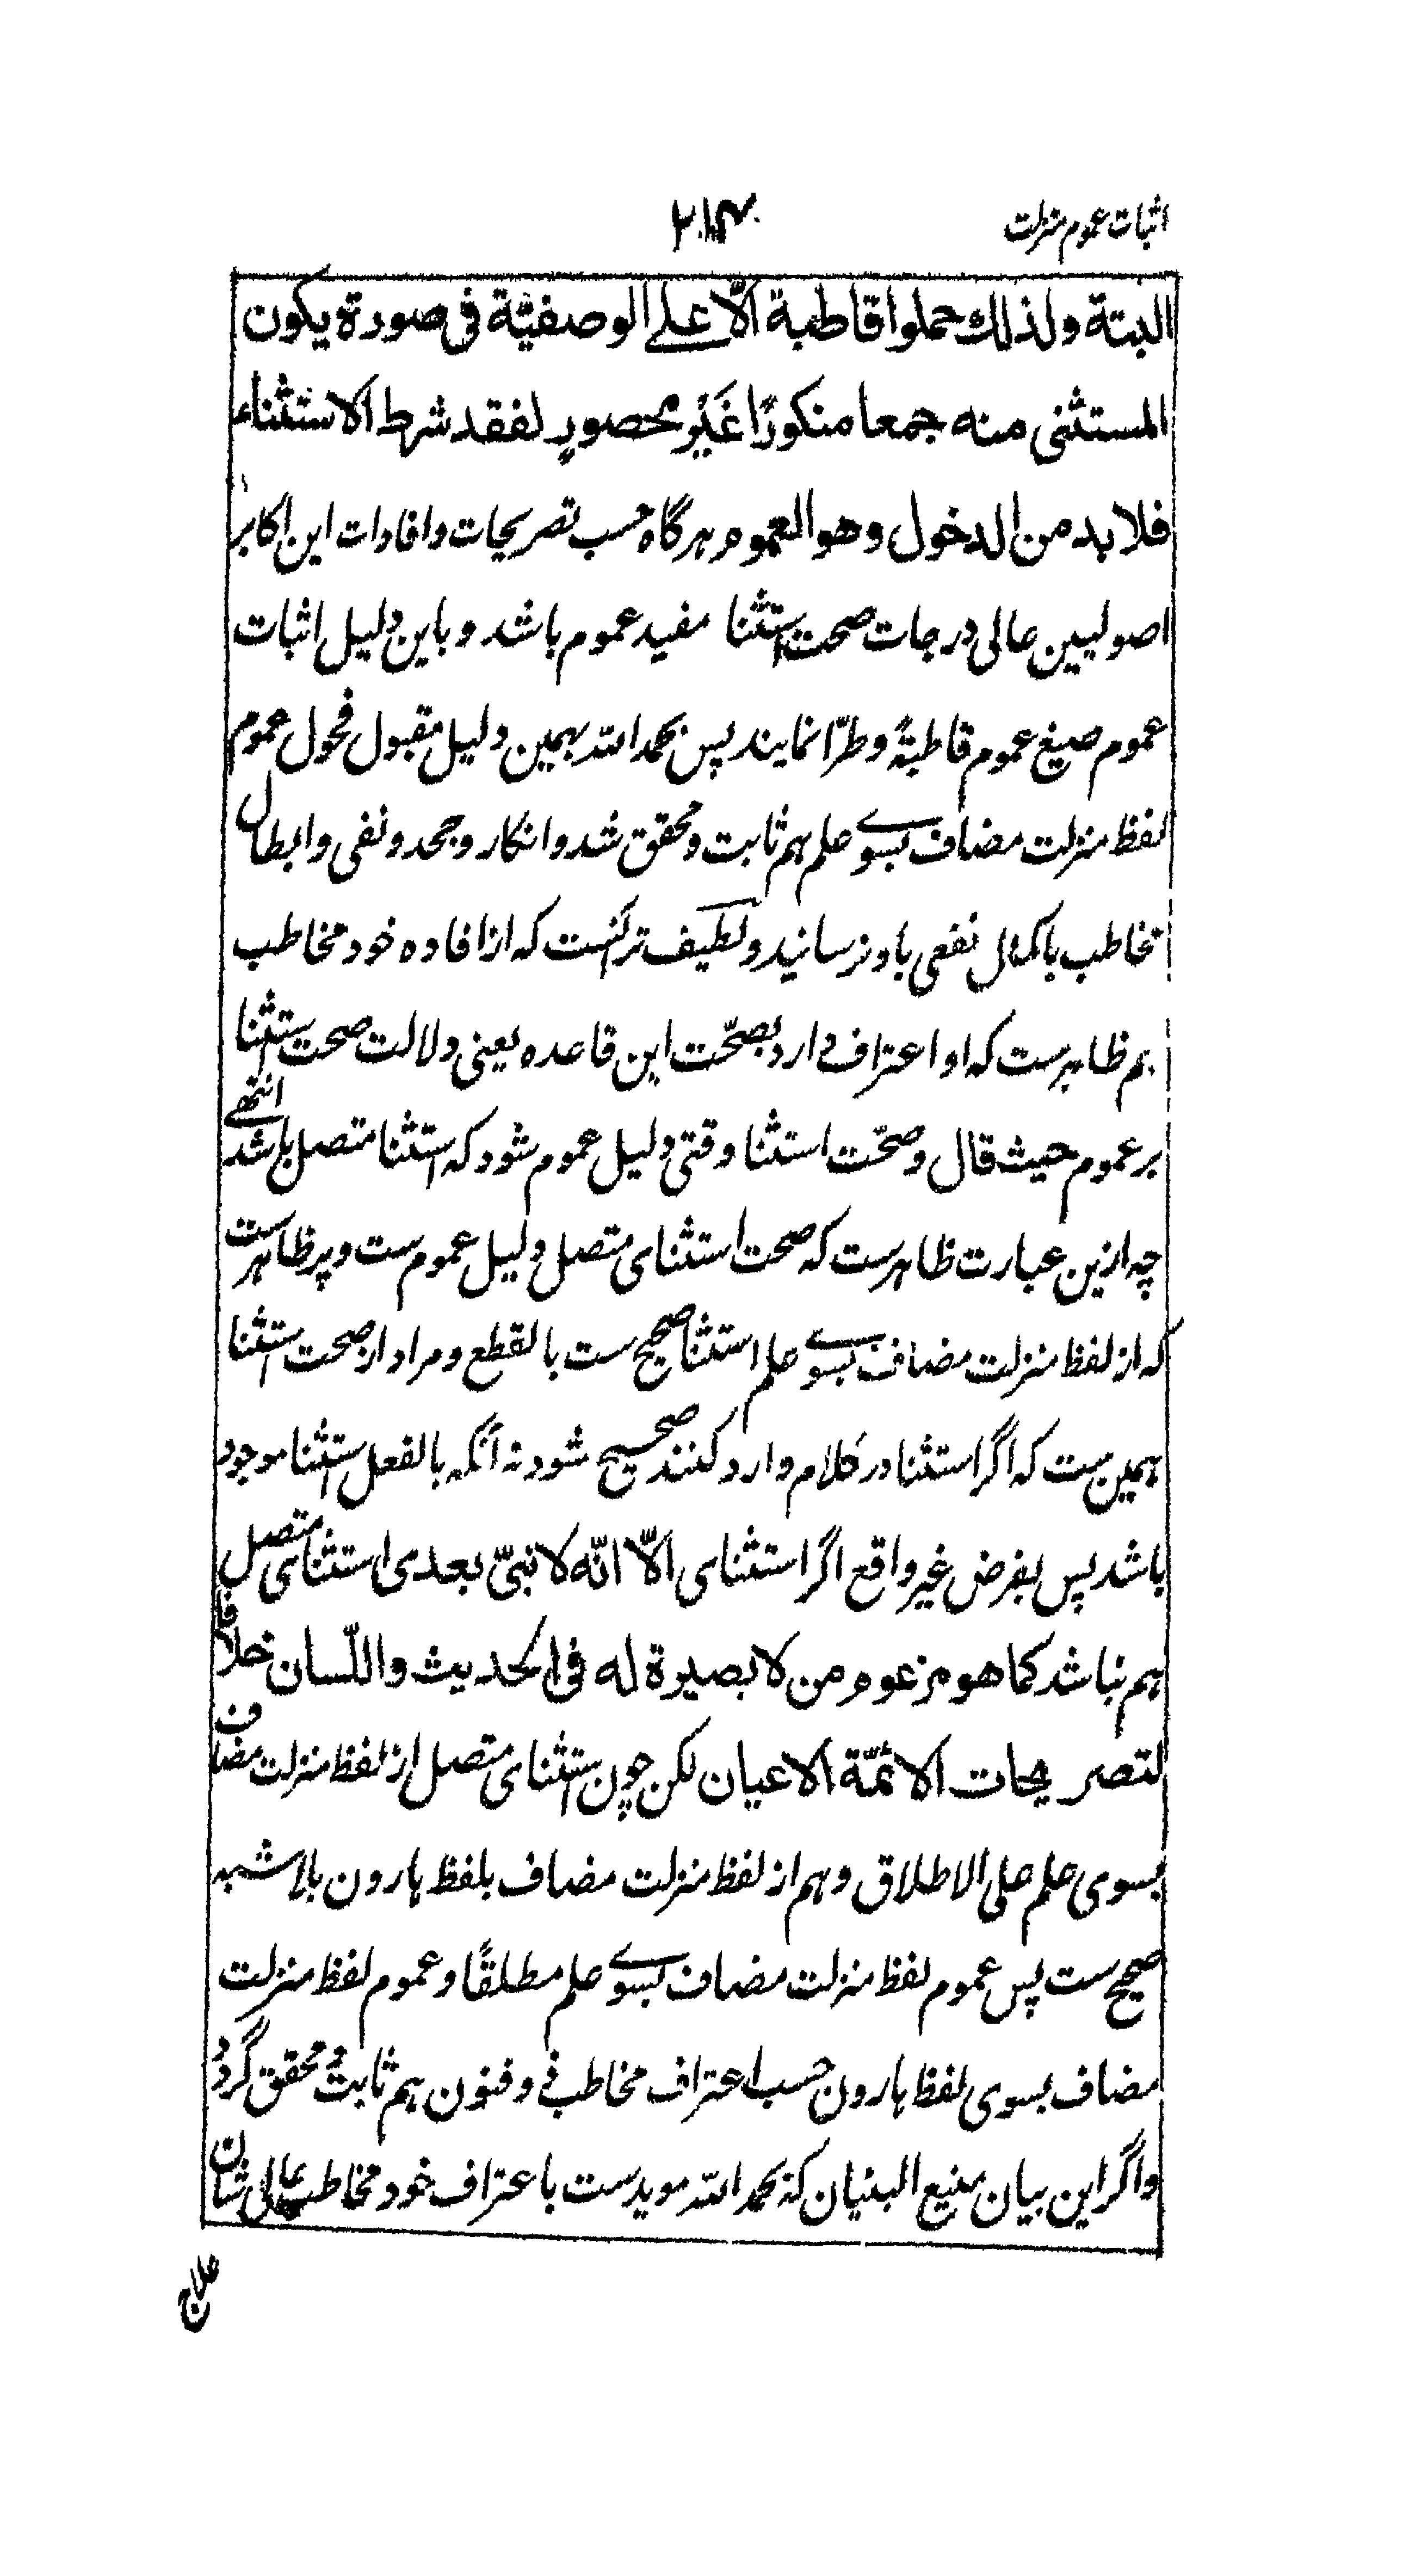 اثبات عموم منزلت
البتة ولذلك حملوا قاطبة الّا علے الوصفيّة فى صورة يكون
المستثنى منه جمعا منكورًا غَيْر محصورٍ لفقد شرط الاستثناء
فلا بد من الدخول وهو العموم هرگاه حسب تصریحات وافادات این اکابر
اصولیین عالی درجات صحت استثنا مفید عموم باشد و باین دلیل اثبات
عموم صیغ عموم قاطبةً و طرّا نمایند پس بحمد الله بهمین دلیل مقبول فحول عموم
لفظ منزلت مضاف بسوے علم هم ثابت و محقق شد و انکار و جحد و نفی و ابطال
تخاطب باکمال نفعی باو نرسانید و لطیف تر آنست که از افاده خود مخاطب
هم ظاهرست که او اعتراف دارد بصحّت این قاعده یعنی دلالت صحت استثنا
بر عموم حیث قال و صحّت استثنا وقتی دلیل عموم شود که استثنا متصل باشد انتهے
چه ازین عبارت ظاهرست که صحت استثنای متصل دلیل عموم ست و پر ظاهرست
که از لفظ منزلت مضاف بسوے علم استثنا صحیح ست بالقطع و مراد از صحت استثنا
همین ست که اگر استثنا در کلام وارد کنند صحیح شود نه آنکه بالفعل استثنا موجود
باشد پس بفرض غیر واقع اگر استثنای الّا انّه لا نبىّ بعدى استثنای متصل
هم نباشد كما هو مزعوم من لا بصيرة له فى الحديث واللّسان خلافا
لتصريحات الائمّة الاعيان لکن چون استثنای متصل از لفظ منزلت مضاف
بسوی علم علی الاطلاق و هم از لفظ منزلت مضاف بلفظ هارون بلا شبه
صحیح ست پس عموم لفظ منزلت مضاف بسوے علم مطلقًا و عموم لفظ منزلت
مضاف بسوی لفظ هارون حسب اعتراف مخاطب ذی و فنون هم ثابت و محقق گردد
و اگر این بیان منیع البنیان که بحمد الله مویدست باعتراف خود مخاطب عالی شان
علاج